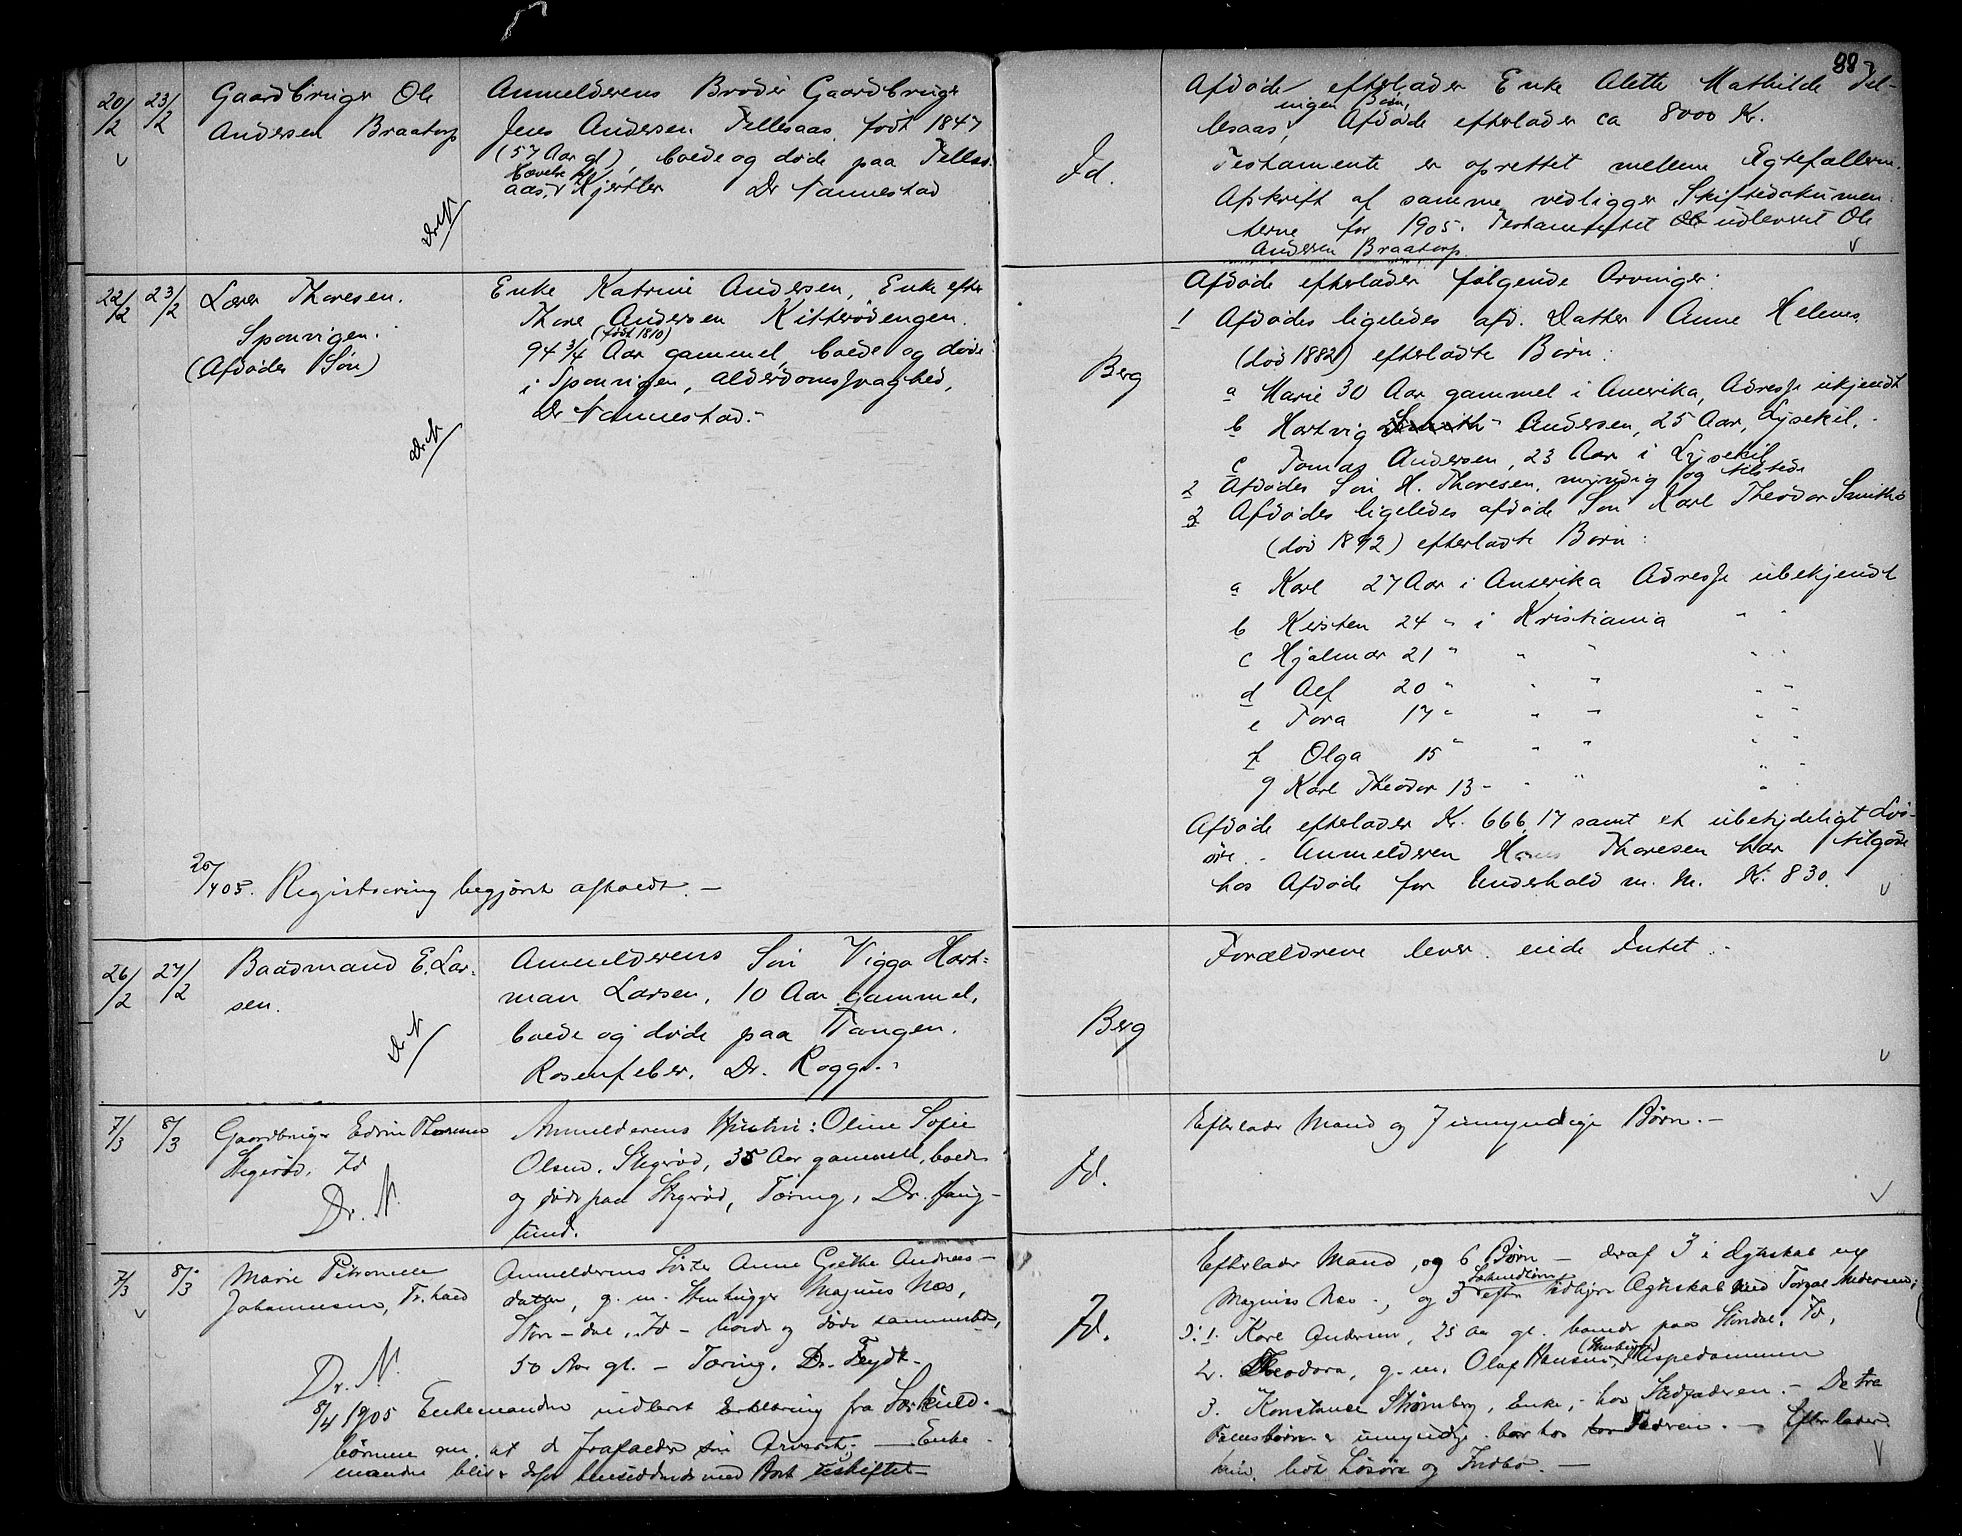 88
20/2 23/2 Gaardbruger Ole
Andersen Braatorp
Anmelderens Broder Gaardbruger
Jens Andersen Tellesaas, født 1847
(57 Aar gl), boede og døde paa Telles-
aas, Hjertes Dr Nannestad
Dr N
Id.
Afdøde efterlader Enke Alette Mathilde Tel-
ingen Børn,
lesaas, Afdøde efterlader ca 8000 Kr.
Testamente er oprettet mellem Egtefællerne.
Afskrift af samme vedligger Skiftedokumen-
terne for 1905. Testamentet udleveret Ole
Andersen Braatorp
22/2 23/2 Lærer Thoresen.
Sponvigen.
(Afdødes Søn)
Enke Katrine Andersen, Enke efter
Thore Andersen Kitterødengen.
(født 1810)
94 3/4 Aar gammel, boede og døde
i Sponvigen, Alderdomssvaghed,
Dr Nannestad.-
Dr. N
25/4 05. Registrering begjært afholdt. -
Berg
Afdøde efterlader følgende Arvinger:
1 Afdødes ligeledes afd. Datter Anne Helenes
(død 1882) efterladte Børn:
a Marie 30 Aar gammel i Amerika, Adresse ukjendt
b Hartvig Andersen, 25 Aar, Lysekil.
c Tomas Andersen, 23 Aar i Lysekil
2 Afdødes Søn H. Thoresen, myndig og tilstede
3 Afdødes ligeledes afdøde Søn Karl Theodor Smiths
(død 1892) efterladte Børn:
a Karl 27 Aar i Amerika Adresse ubekjendt
b Kirsten 24 " i Kristiania " "
c Hjalmar 21 " " " " "
d Alf 20 " " " " "
e Tora 17 " " " " "
f Olga 15 " " " " "
g Karl Theodor 13 - " " " "
Afdøde efterlader Kr. 666,17 samt et ubetydeligt Løs-
øre. - Anmelderen Hans Thoresen har tilgode
hos Afdøde for Underhold m. M. Kr. 830.
26/2 27/2 Baadmand E. Lar-
sen.
Anmelderens Søn Viggo Hart-
man Larsen, 10 Aar gammel,
boede og døde paa Tangen.
Rosenfeber. Dr. Rogge.
Dr N
Berg
Forældrene lever. eiede Intet.-
7/3 8/3 Gaardbruger Edvin Thoresen
Stegerød, Id
Dr. N.
Anmelderens Hustru: Oline Sofie
Olsen, Stegerød, 35 Aar gammel, boede
og døde paa Stegerød, Tæring, Dr.
Id.
Efterlader Mand og 7 umyndige Børn.-
7/3 8/3 Marie Petronelle
Johannesen, Fr.hald
Dr. N.
Anmelderens Søster Anne Grethe Andreas-
datter, g. m. Stenhugger Magnus Næs,
boede og døde sammesteds,
50 Aar gl. - Tæring. Dr. Feydt.
8/4 1905 Enkemanden indleveret Erklæring fra Særkuld-
børnene om, at de frafalder sin Arveret; - Enke-
manden bliver derfor hensiddende med Boet uskiftet-
Id.
Efterlader Mand, og 6 Børn - deraf 3 i Ægteskab med
Magnus Næs -, og 3 Særkuldbørn efter tidligere Ægteskab med Andersen;
1. Karl Andersen, 25 Aar gl. boende paa
2. Theodora, g. m. Olaf Hansen, (Stenhugger) Aspedammen
3. Konstance Strømberg, Enke, - hos Stedfaderen. - De tre
Fællesbørn er umyndige bor hos Faderen. - Efterlader
kun lidt Løsøre og Indbo. -